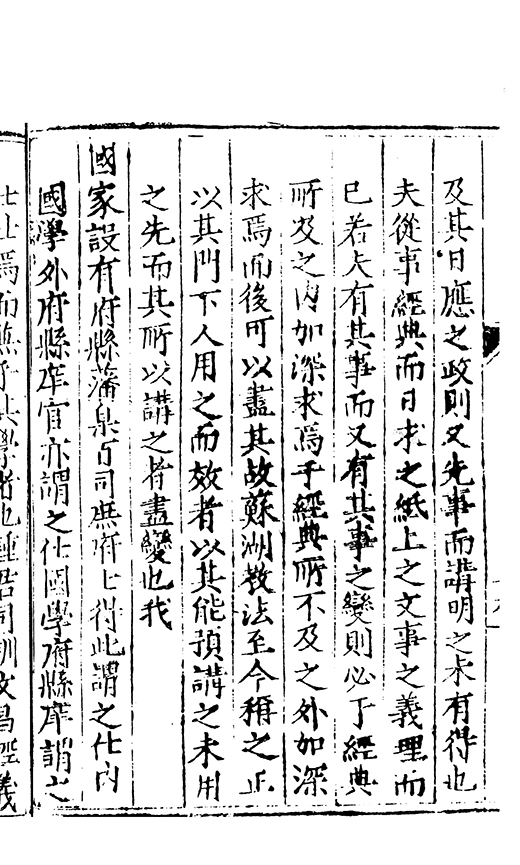 及其日應之政則又先事而講明之未有得也
夫從事經典而日求之紙上之文事之義理而
已若夫有其事而又有其事之變則必于經典
所及之內加深求焉于經典所不及之外加深
求焉而後可以盡其故蘇湖教法至今稱之正
以其門下人用之而效者以其能預講之未用
之先而其所以講之者盡變也我
國家設有府縣藩臬百司庶府士得此謂之仕內
國學外府縣庠官亦謂之仕國學府縣庠謂之
仕焉而無予其學者也鍾君司訓文昌經義